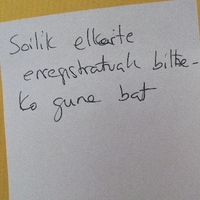 Soilik elkarte
erregistratuak biltze-
ko gune bat